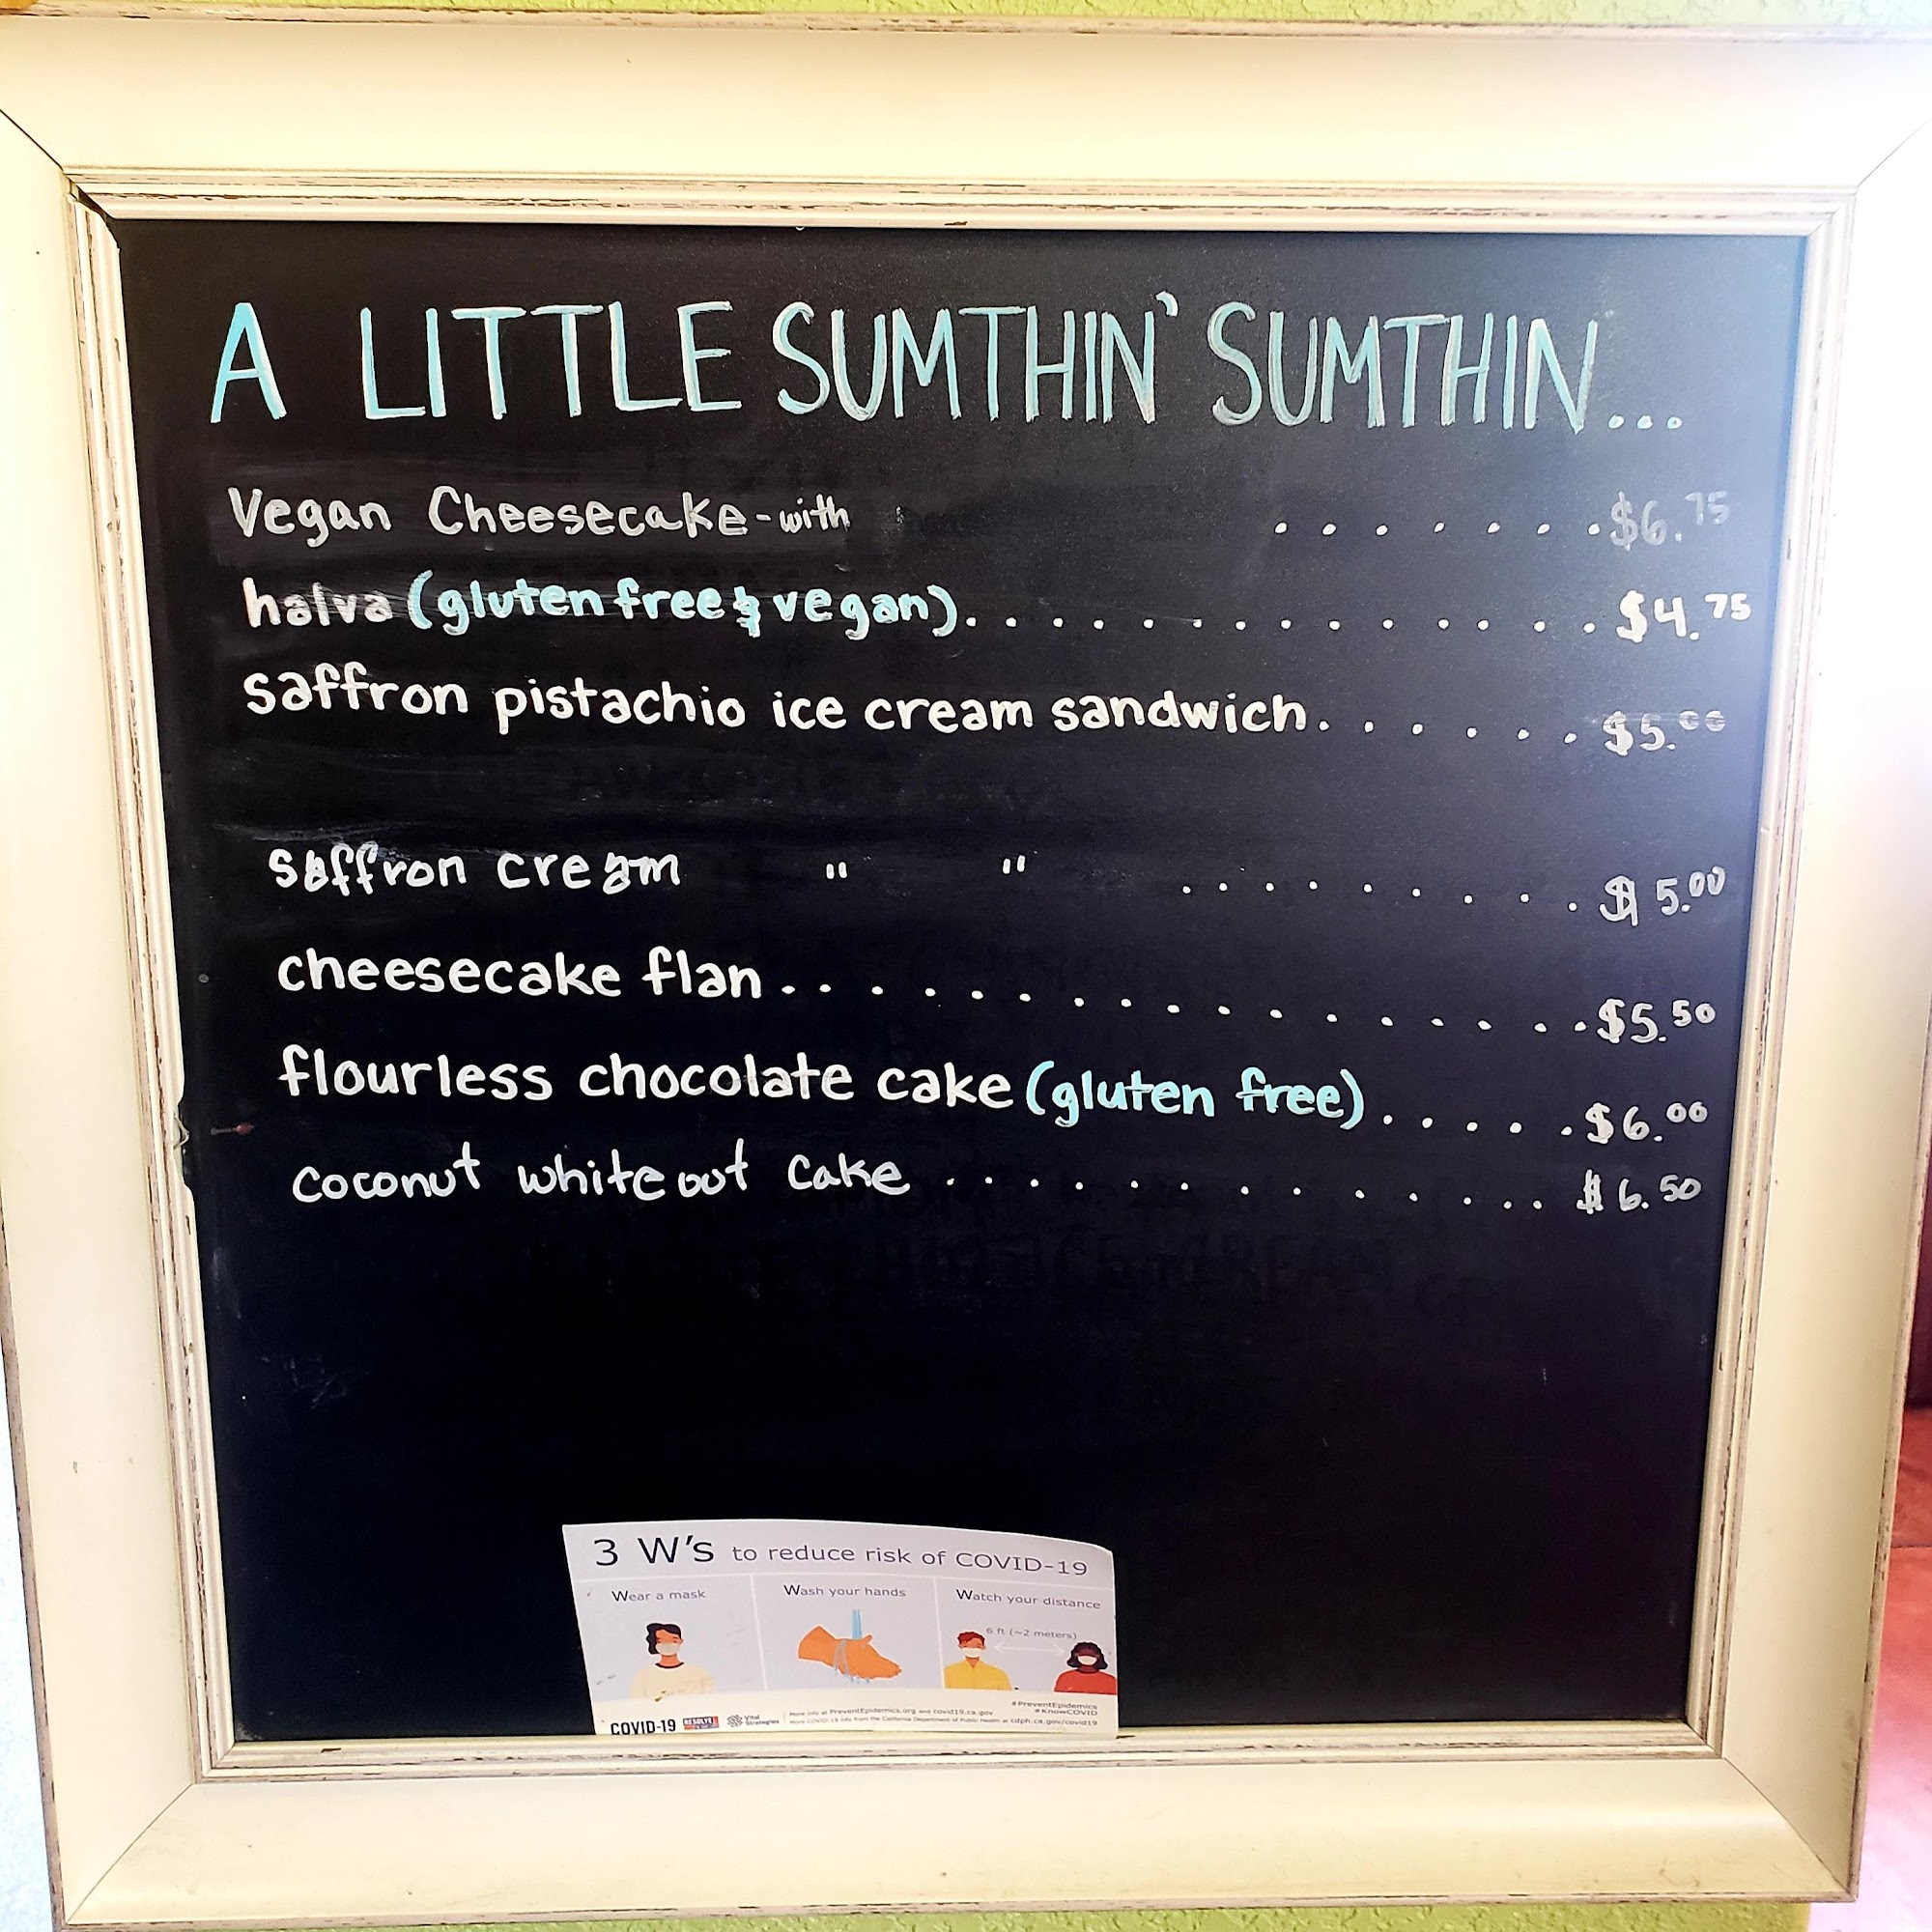 A LITTLE SUMTHIN' SUMTHIN...
Vegan Cheesecake-with . . . . . . . $6.75
halva (gluten free & vegan). . . . . . . . . . . . . . $4.75
saffron pistachio ice cream sandwich. . . . . . $5.00
saffron cream " " . . . . . . . . . $5.00
cheesecake flan. . . . . . . . . . . . . . . . $5.50
flourless chocolate cake (gluten free). . . . . $6.00
coconut white out cake . . . . . . . . . . . . . $6.50
3 W's to reduce risk of COVID-19
Wear a mask
Wash your hands
Watch your distance
6 ft (~2 meters)
#PreventEpidemics
#KnowCOVID
COVID-19 RESOLVE Vital Strategies
More info at PreventEpidemics.org and covid19.ca.gov
More COVID-19 info from the California Department of Public Health at cdph.ca.gov/covid19